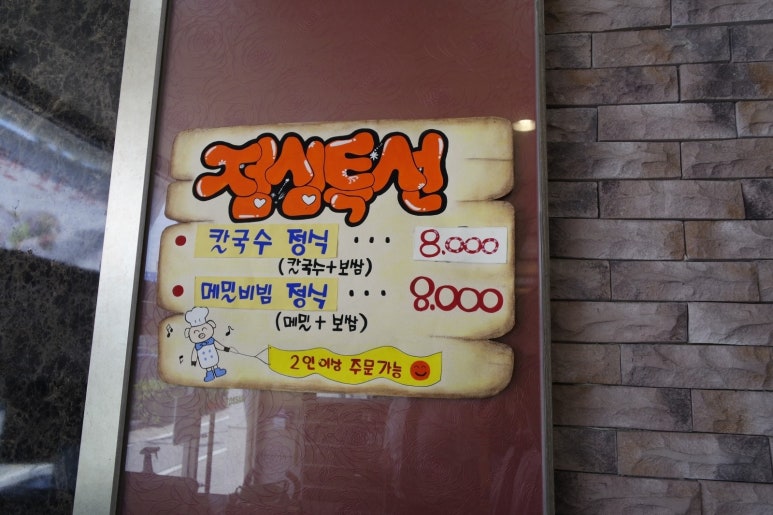 점심특선
칼국수 정식 ··· 8.000
(칼국수+보쌈)
메밀비빔 정식 ··· 8.000
(메밀+보쌈)
2인이상 주문가능